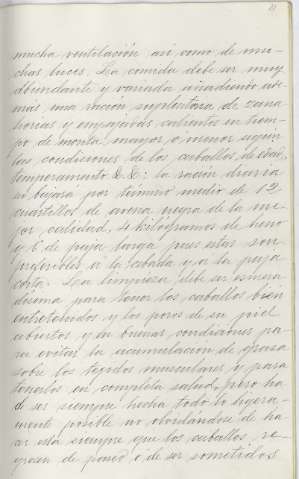 mucha ventilación asi como de mu-
chas luces. La comida debe ser muy
abundante y variada añadiendo ade-
más una ración supletoria de zana-
horias y empajadas calientes en tiem-
po de monta, mayor ó menor segun
las condiciones de los caballos, de edad,
temperamento &. &.: la ración diaria
no bajará por término medio de 12
cuartillos de avena negra de la me-
jor calidad, 4 kilogramos de heno
y 6 de paja larga pues estas son
preferibles á la cebada y á la paja
corta. La limpieza debe ser esmera-
dísima para tener los caballos bien
entretenidos y los poros de su piel
abiertos y en buenas condiciones pa-
ra evitar la acumulación de grasa
sobre los tegidos musculares y para
tenerlos en completa salud, pero ha
de ser siempre hecha todo lo ligera-
mente posible no olvidándose de ha-
cer esta siempre que los caballos re-
gresen de paseo ó de ser sometidos